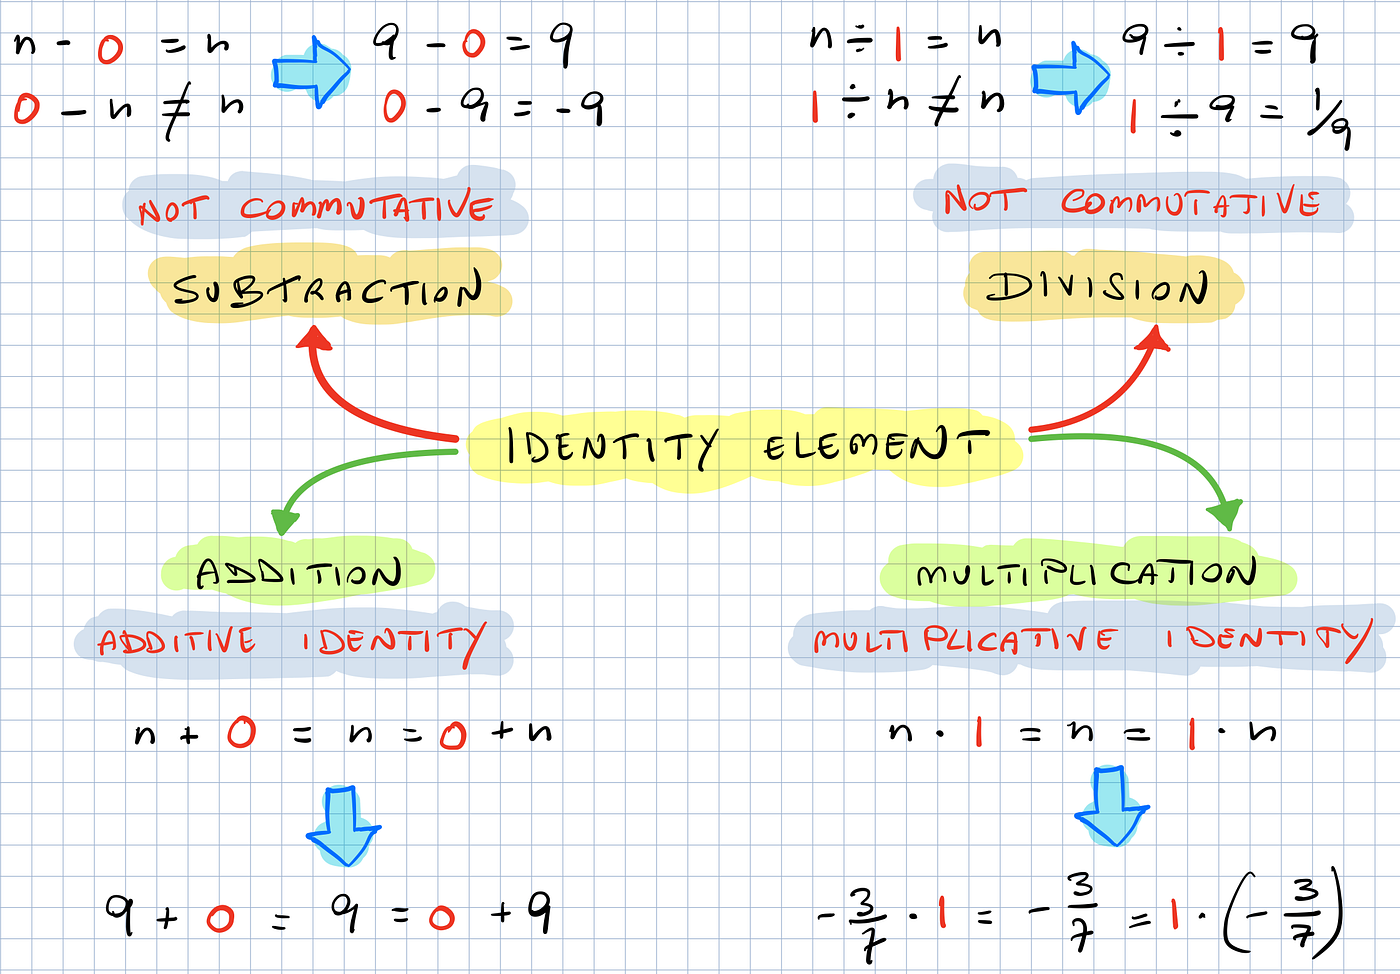 n - 0 = n
9 - 0 = 9
0 - n ≠ n
0 - 9 = -9
NOT COMMUTATIVE
SUBTRACTION
n ÷ 1 = n
9 ÷ 1 = 9
1 ÷ n ≠ n
1 ÷ 9 = 1/9
NOT COMMUTATIVE
DIVISION
IDENTITY ELEMENT
ADDITION
ADDITIVE IDENTITY
n + 0 = n = 0 + n
9 + 0 = 9 = 0 + 9
MULTIPLICATION
MULTIPLICATIVE IDENTITY
n · 1 = n = 1 · n
- 3/7 · 1 = - 3/7 = 1 · (- 3/7)